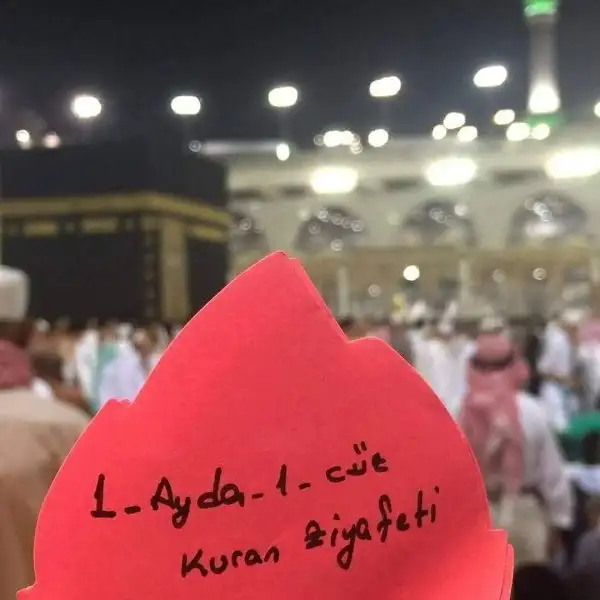 1-Ayda-1-cüz
Kuran ziyafeti